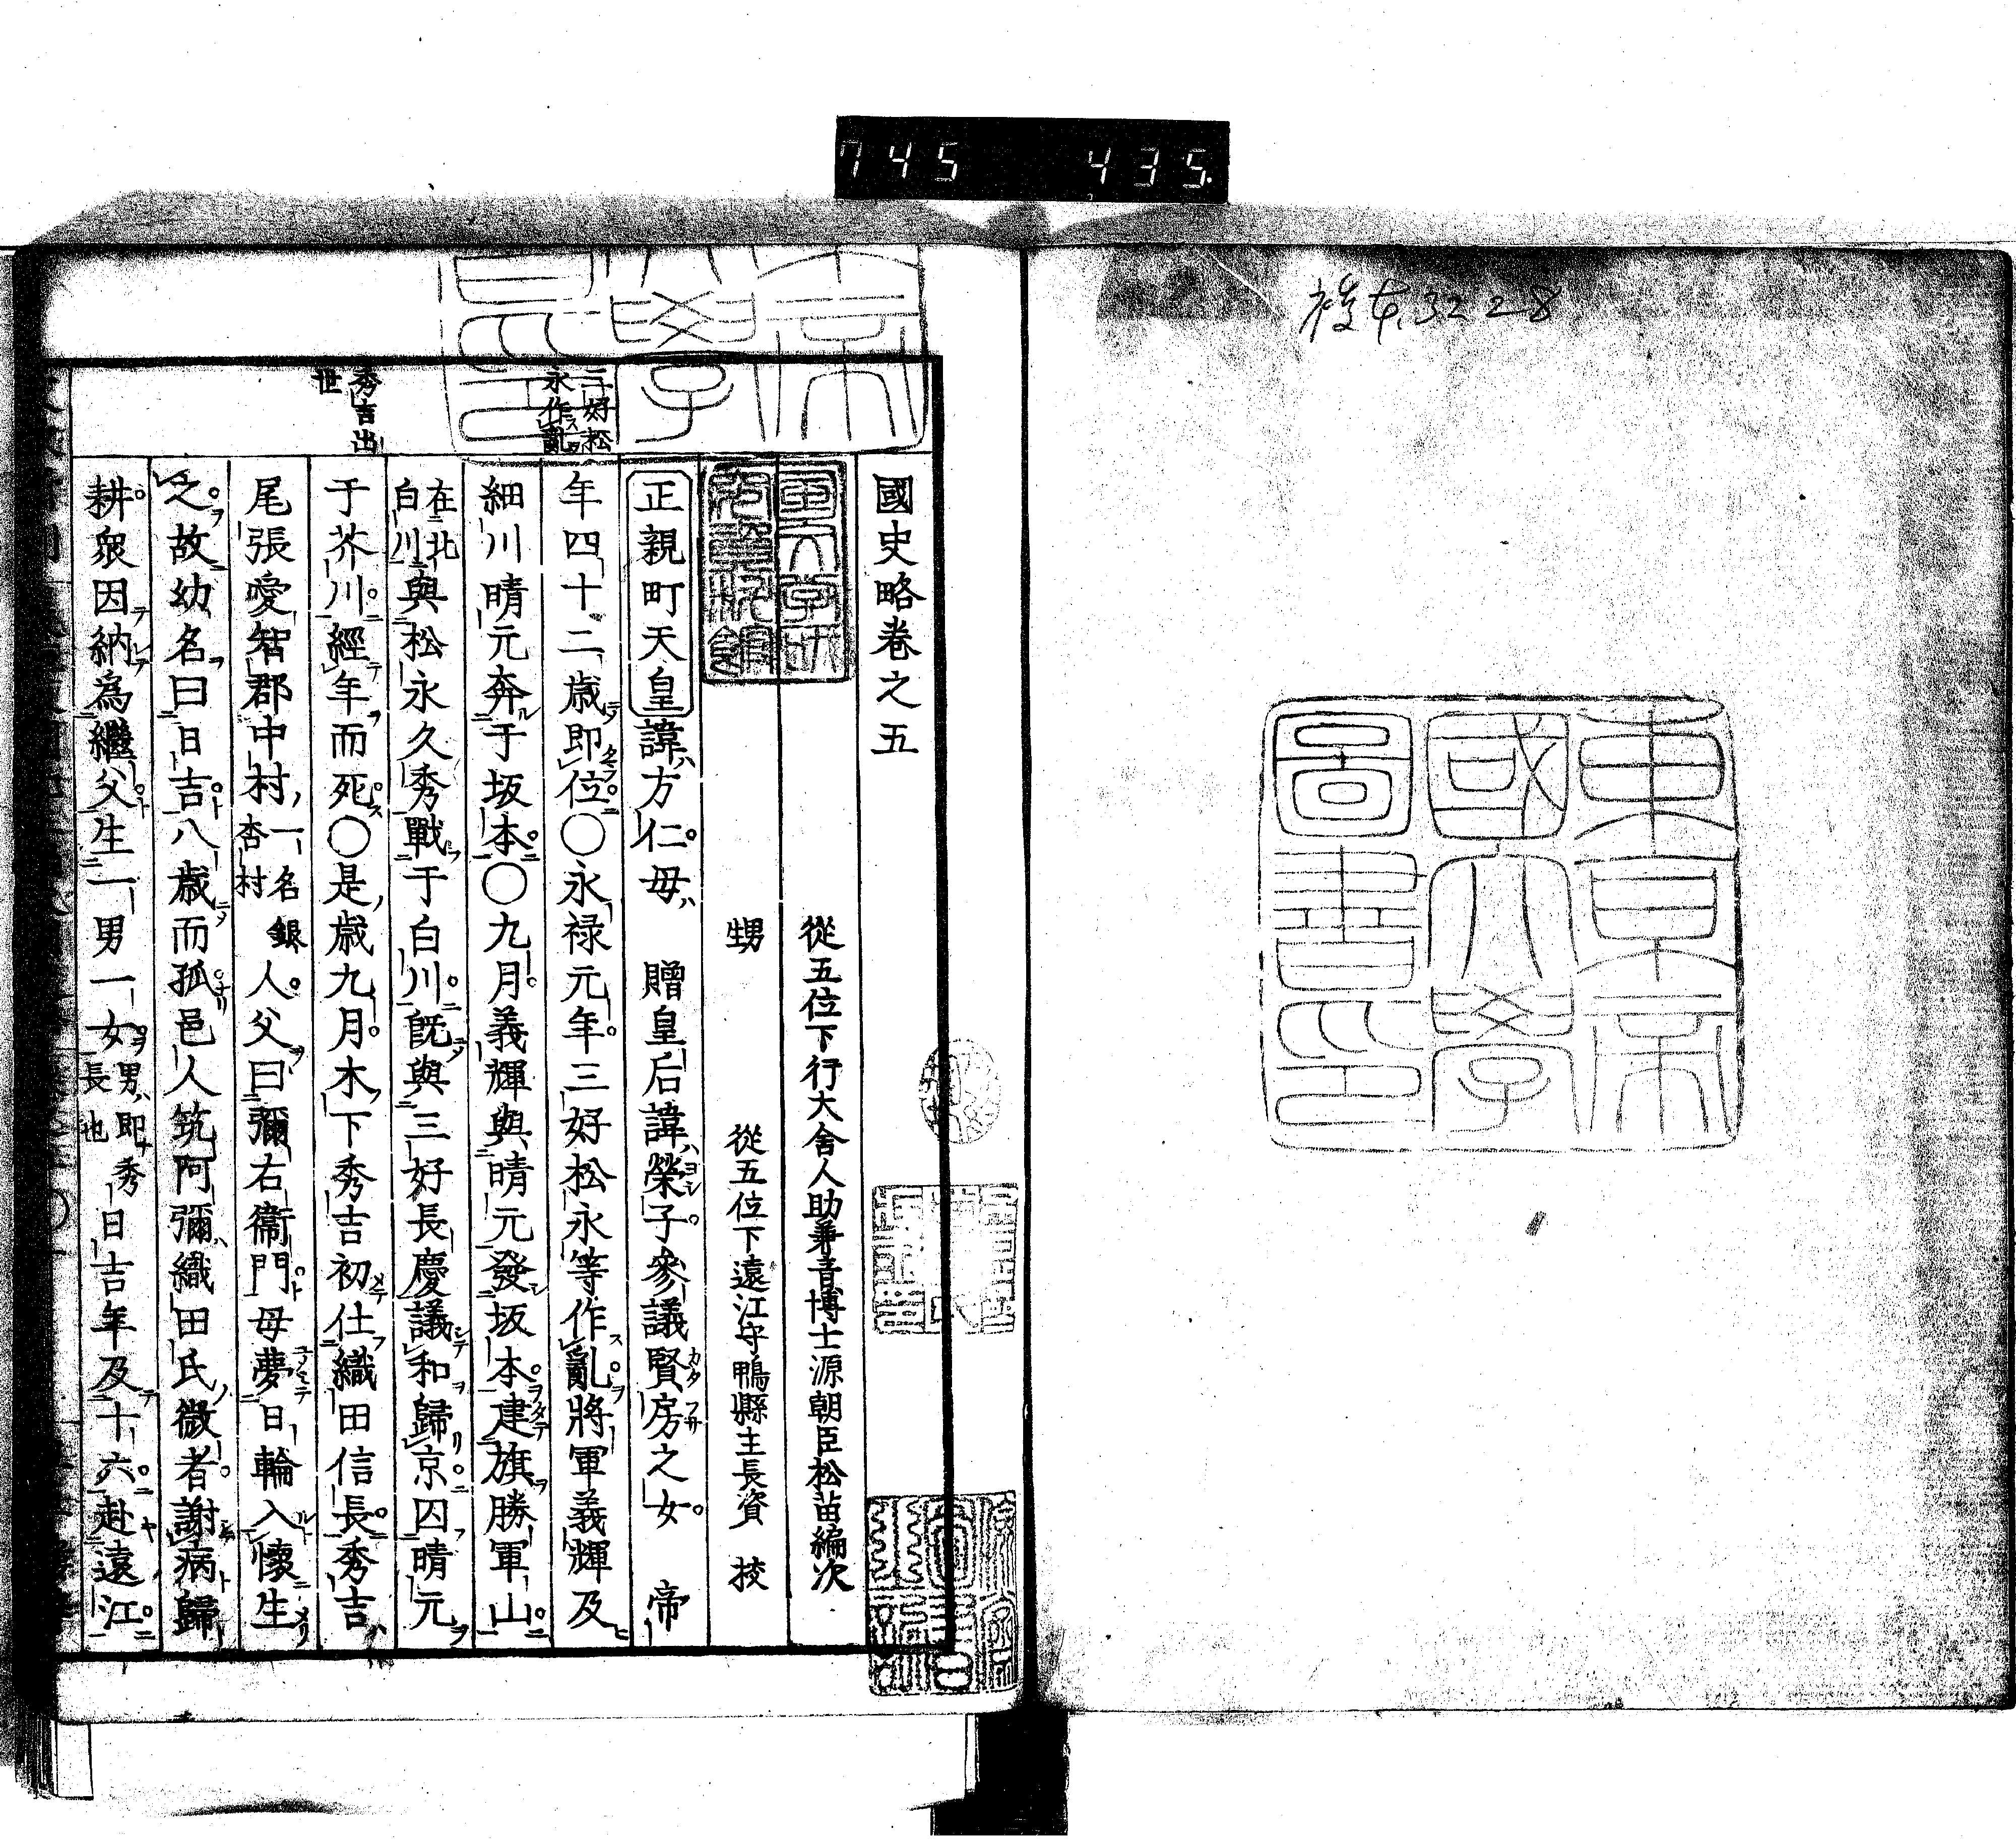 745 435
3228
東京帝
國大學
圖書印
國史略卷之五
從五位下行大舍人助兼音博士源朝臣松苗編次
甥 從五位下遠江守鴨縣主長資 挍
正親町天皇諱ハ方仁母ハ 贈皇后諱ハ榮子參議賢房之女 帝
年四十二歲即位○永祿元年三好松永等作亂將軍義輝及
細川晴元奔于坂本○九月義輝與晴元發坂本建旗勝軍山
在北白川與松永久秀戰于白川既與三好長慶議和歸京囚晴元
于芥川經年而死○是歲九月木下秀吉初仕織田信長秀吉ハ
尾張愛智郡中村一名銀杏村人父曰彌右衞門母夢日輪入懷生
之故幼名曰日吉八歲而孤邑人筑阿彌織田氏微者謝病歸
耕衆因納為繼父生一男一女男即秀長也日吉年及十六赴遠江
三好松永作亂
秀吉出世